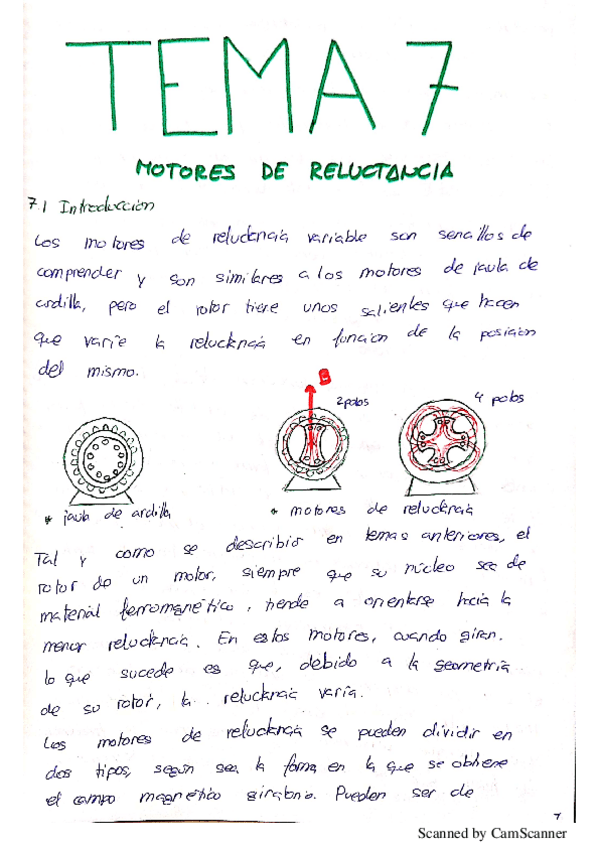 TEMA 7
MOTORES DE RELUCTANCIA
7.1 Introducción
Los motores de reluctancia variable son sencillos de
comprender y son similares a los motores de jaula de
ardilla, pero el rotor tiene unos salientes que hacen
que varíe la reluctancia en funcion de la posicion
del mismo.
B
2 polos
4 polos
* jaula de ardilla
* motores de reluctancia
Tal y como se describio en temas anteriores, el
rotor de un motor, siempre que su núcleo sea de
material ferromagnético, tiende a orientarse hacia la
menor reluctancia. En estos motores, cuando giran,
lo que sucede es que, debido a la geometria
de su rotor, la reluctancia varía.
Los motores de reluctancia se pueden dividir en
dos tipos, según sea la forma en la que se obtiene
el campo magnético giratorio. Pueden ser de
7
Scanned by CamScanner